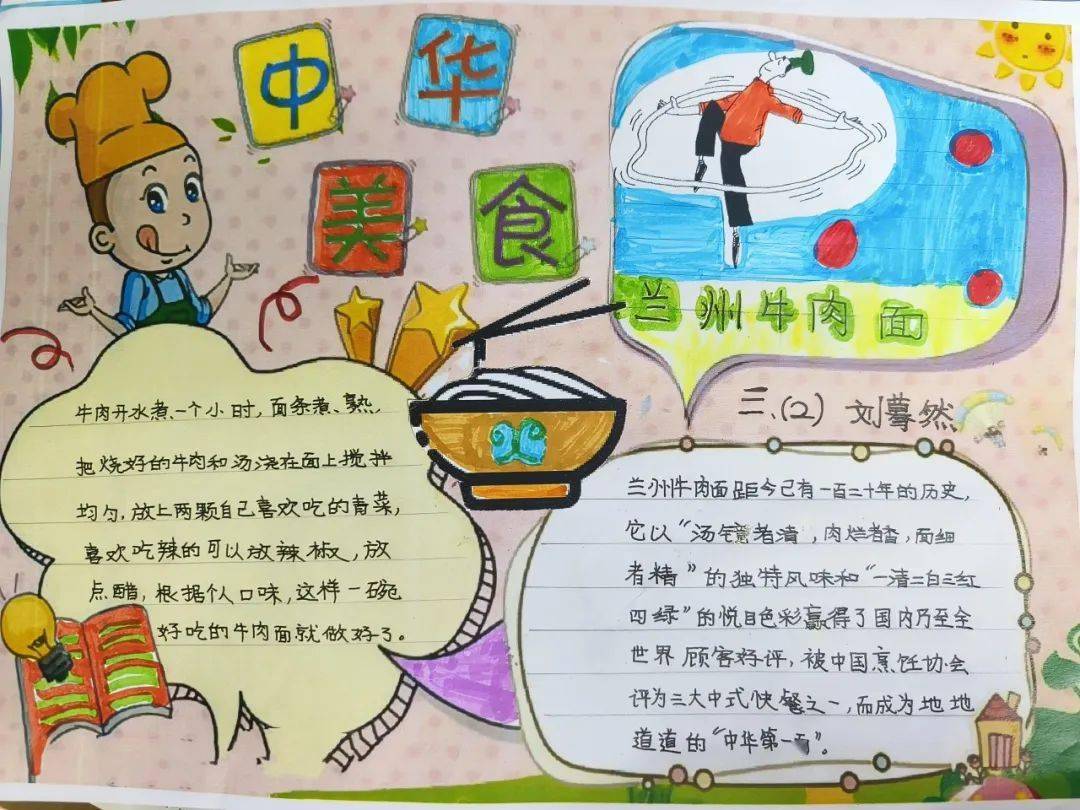 中华
美食
兰州牛肉面
三.(2) 刘蓦然
牛肉开水煮一个小时,面条煮、熟,
把烧好的牛肉和汤浇在面上搅拌
均匀,放上两颗自己喜欢吃的青菜,
喜欢吃辣的可以放辣椒,放
点醋,根据个人口味,这样一碗
好吃的牛肉面就做好了。
兰州牛肉面距今已有一百二十年的历史,
它以“汤镜者清,肉烂者香,面细
者精”的独特风味和“一清二白三红
四绿”的悦目色彩赢得了国内乃至全
世界顾客好评,被中国烹饪协会
评为三大中式快餐之一,而成为地地
道道的“中华第一面”。